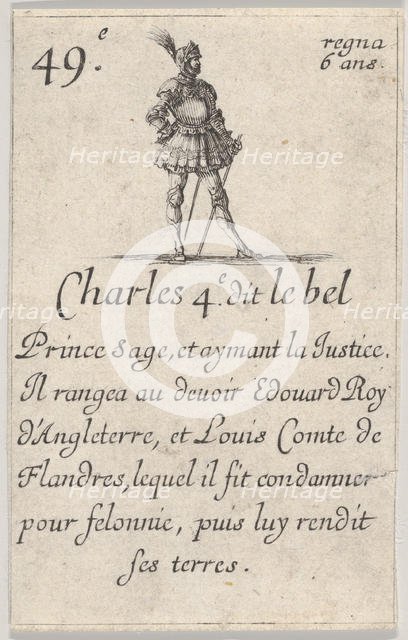 49.e
regna
6 ans.
Charles 4.e dit le bel
Prince sage, et aymant la Justice.
Il rangea au devoir Edouard Roy
d'Angleterre, et Louis Comte de
Flandres, lequel il fit condamner
pour felonnie, puis luy rendit
ses terres.
Heritage Heritage Heritage
Heritage Heritage
Heritage Heritage Heritage